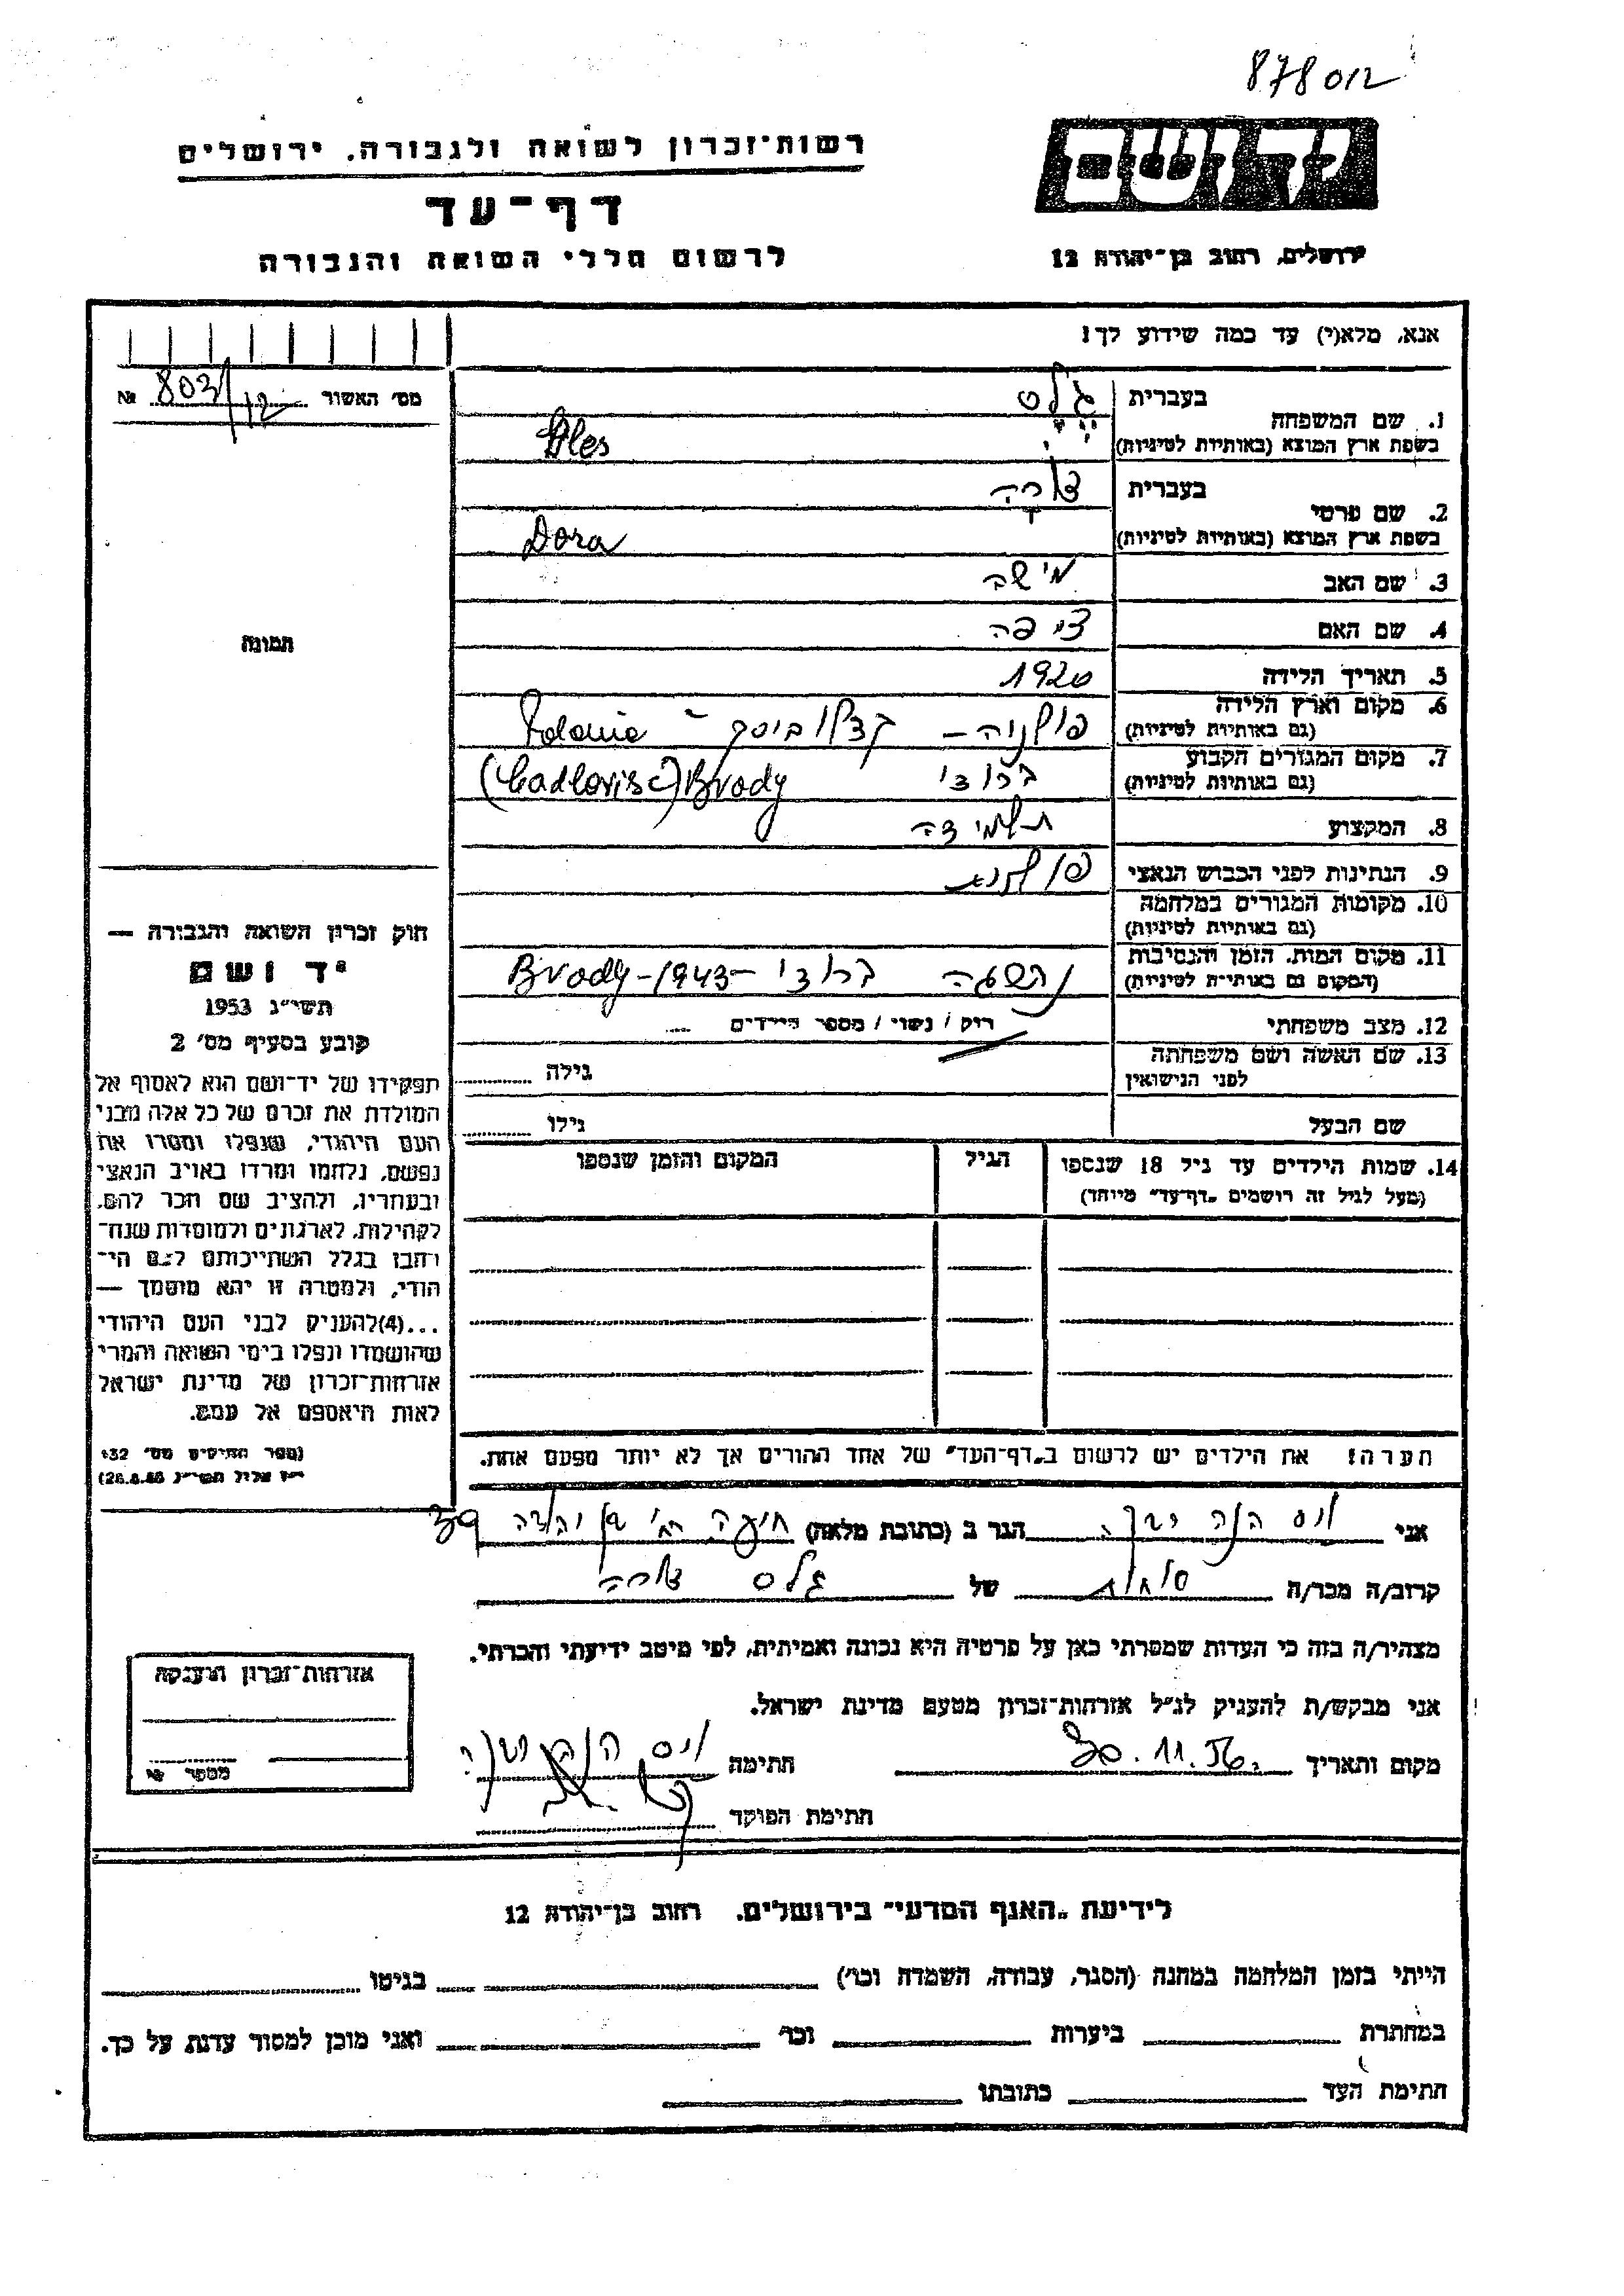 878012
רשות־זכרון לשואה ולגבורה, ירושלים
יד ושם
דף־עד
לרשום חללי השואה והגבורה
ירושלים, רחוב בן־יהודה 12
אנא, מלא(י) עד כמה שידוע לך!
מס׳ האשור № 803/12
1. שם המשפחה בעברית
בשפת ארץ המוצא (באותיות לטיניות)
2. שם פרטי בעברית דורה
בשפת ארץ המוצא (באותיות לטיניות) Dora
3. שם האב מישה
4. שם האם ציפה
5. תאריך הלידה 1920
6. מקום וארץ הלידה פולניה – Polania
(גם באותיות לטיניות)
7. מקום המגורים הקבוע ברודי Brody
(גם באותיות לטיניות)
8. המקצוע תלמידה
9. הנתינות לפני הכבוש הנאצי
10. מקומות המגורים במלחמה
(גם באותיות לטיניות)
11. מקום המות, הזמן והנסיבות ברודי Brody-1943-
(המקום גם באותיות לטיניות)
12. מצב משפחתי רווק / נשוי / מספר הילדים ...
13. שם האשה ושם משפחתה גילה
לפני הנישואין
שם הבעל גילו
14. שמות הילדים עד גיל 18 שנספו הגיל המקום והזמן שנספו
(מעל לגיל זה רושמים „דף־עד״ מיוחד)
הערה! את הילדים יש לרשום ב„דף־העד״ של אחד ההורים אך לא יותר מפעם אחת.
תמונה
חוק זכרון השואה והגבורה —
יד ושם
תשי״ג 1953
קובע בסעיף מס׳ 2
תפקידו של יד־ושם הוא לאסוף אל
המולדת את זכרם של כל אלה מבני
העם היהודי, שנפלו ומסרו את
נפשם, נלחמו ומרדו באויב הנאצי
ובעוזריו, ולהציב שם וזכר להם,
לקהילות, לארגונים ולמוסדות שנח־
רבו בגלל השתייכותם לעם הי־
הודי, ולמטרה זו יהא מוסמך —
...(4)להעניק לבני העם היהודי
שהושמדו ונפלו בימי השואה והמרי
אזרחות־זכרון של מדינת ישראל
לאות היאספם אל עמם.
(ספר החוקים מס׳ 132
אני הגר ב (כתובת מלאה) חיפה
קרוב/ה מכר/ה של גלס דורה
מצהיר/ה בזה כי העדות שמסרתי כאן על פרטיה היא נכונה ואמיתית, לפי מיטב ידיעתי והכרתי.
אני מבקש/ת להעניק לנ״ל אזרחות־זכרון מטעם מדינת ישראל.
מקום ותאריך 30.11.56. חתימה
חתימת הפוקד
אזרחות־זכרון הוענקה
מספר №
לידיעת „האגף המדעי״ בירושלים, רחוב בן־יהודה 12
הייתי בזמן המלחמה במחנה (הסגר, עבודה, השמדה וכו׳) בגיטו
במחתרת ביערות וכו׳ ואני מוכן למסור עדות על כך.
חתימת העד כתובתו